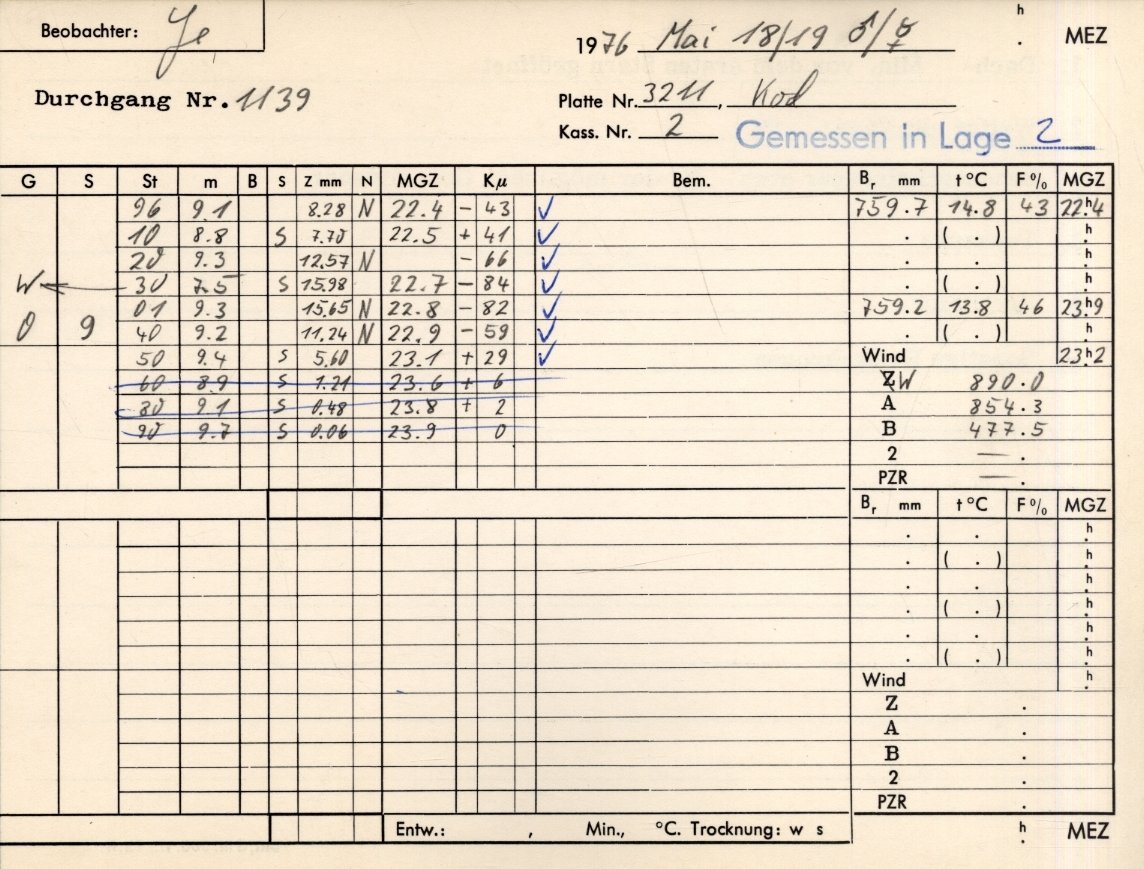 Beobachter: Je
1976 Mai 18/19 ♂/☿ h . MEZ
Durchgang Nr. 1139
Platte Nr. 3211, Kod
Kass. Nr. 2 Gemessen in Lage 2
G S St m B S Z mm N MGZ Kμ Bem. Br mm t °C F % MGZ
96 9.1 8.28 N 22.4 - 43 ✓ 759.7 14.8 43 22h4
10 8.8 S 7.70 22.5 + 41 ✓ . ( . ) h.
20 9.3 12.57 N - 66 ✓ . . h.
W ← 30 7.5 S 15.98 22.7 - 84 ✓ . ( . ) h.
01 9.3 15.65 N 22.8 - 82 ✓ 759.2 13.8 46 23h9
0 9 40 9.2 11.24 N 22.9 - 59 ✓ . ( . ) h.
50 9.4 S 5.60 23.1 + 29 ✓ Wind 23h2
60 8.9 S 1.21 23.6 + 6 Z W 890.0
80 9.1 S 0.48 23.8 + 2 A 854.3
90 9.7 S 0.06 23.9 0 B 477.5
2 — .
PZR — .
Br mm t °C F % MGZ
. . h.
. ( . ) h.
. . h.
. ( . ) h.
. . h.
. ( . ) h.
Wind h.
Z .
A .
B .
2 .
PZR .
Entw.: , Min., °C. Trocknung: w s h . MEZ